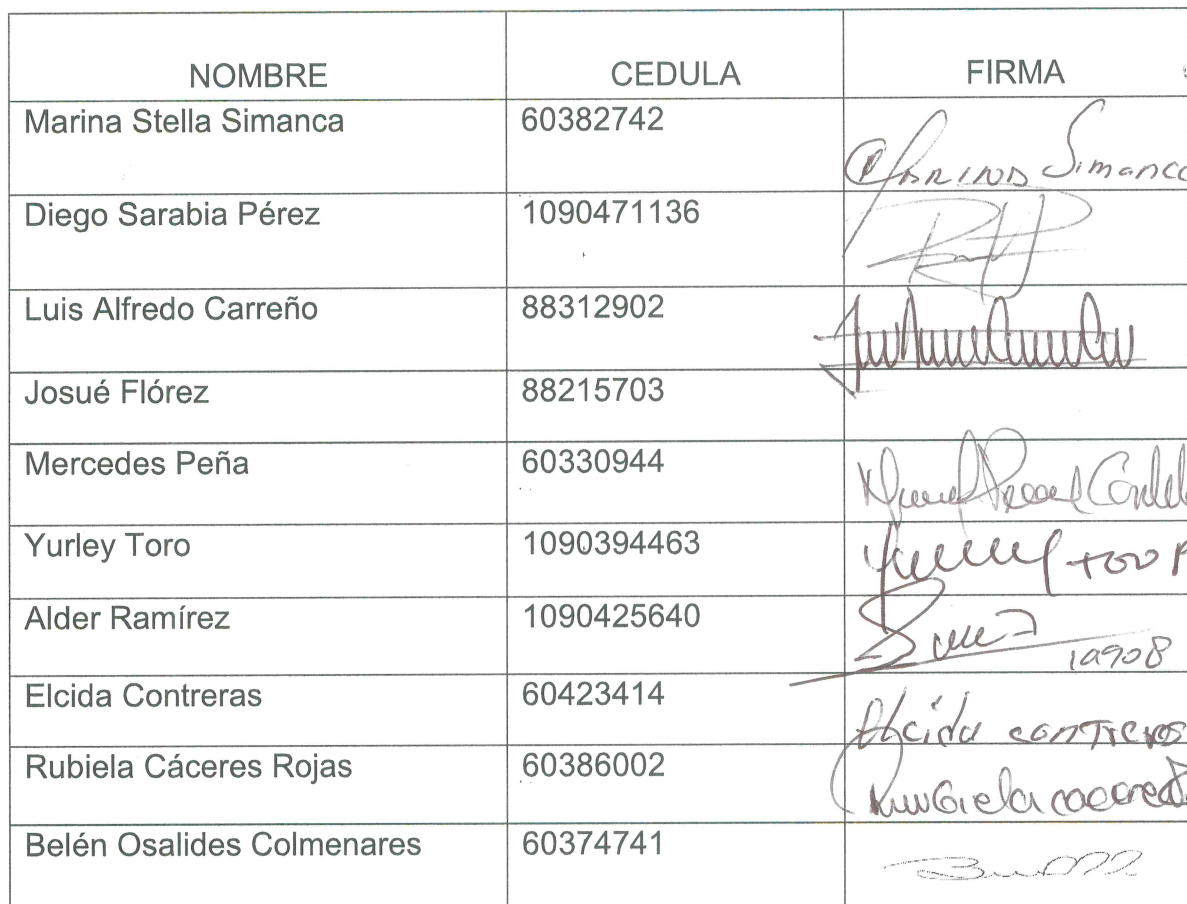 NOMBRE CEDULA FIRMA
Marina Stella Simanca 60382742 Marina Simanca
Diego Sarabia Pérez 1090471136
Luis Alfredo Carreño 88312902
Josué Flórez 88215703
Mercedes Peña 60330944
Yurley Toro 1090394463 toro
Alder Ramírez 1090425640 10908
Elcida Contreras 60423414 contreras
Rubiela Cáceres Rojas 60386002
Belén Osalides Colmenares 60374741